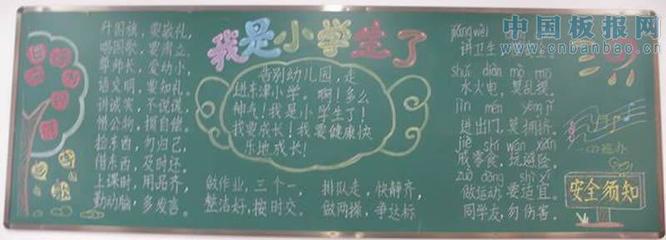 我是小学生了
升国旗，要敬礼，
唱国歌，要肃立。
尊师长，爱幼小，
语文明，要知礼。
讲诚实，不说谎，
借公物，损自偿。
拾东西，勿归己，
借东西，及时还。
上课时，用品齐，
勤动脑，多发言。
告别幼儿园，走
进禾津小学。啊！多么
神气！我是小学生了！
我要成长！我要健康快
乐地成长！
做作业，三个一，
整洁好，按时交。
排队走，快静齐，
做两操，争达标。
jiǎng wèi
讲卫生
shuǐ diàn mò mō
水火电，莫乱摸。
jìn mén yōng jǐ
进出门，莫拥挤。
jiè shí wán xiǎn
戒零食，玩避险。
zuò dòng shì yí
做运动，要适宜。
同学友，勿伤害。
安全须知
中国板报网
www.cnbanbao.cn